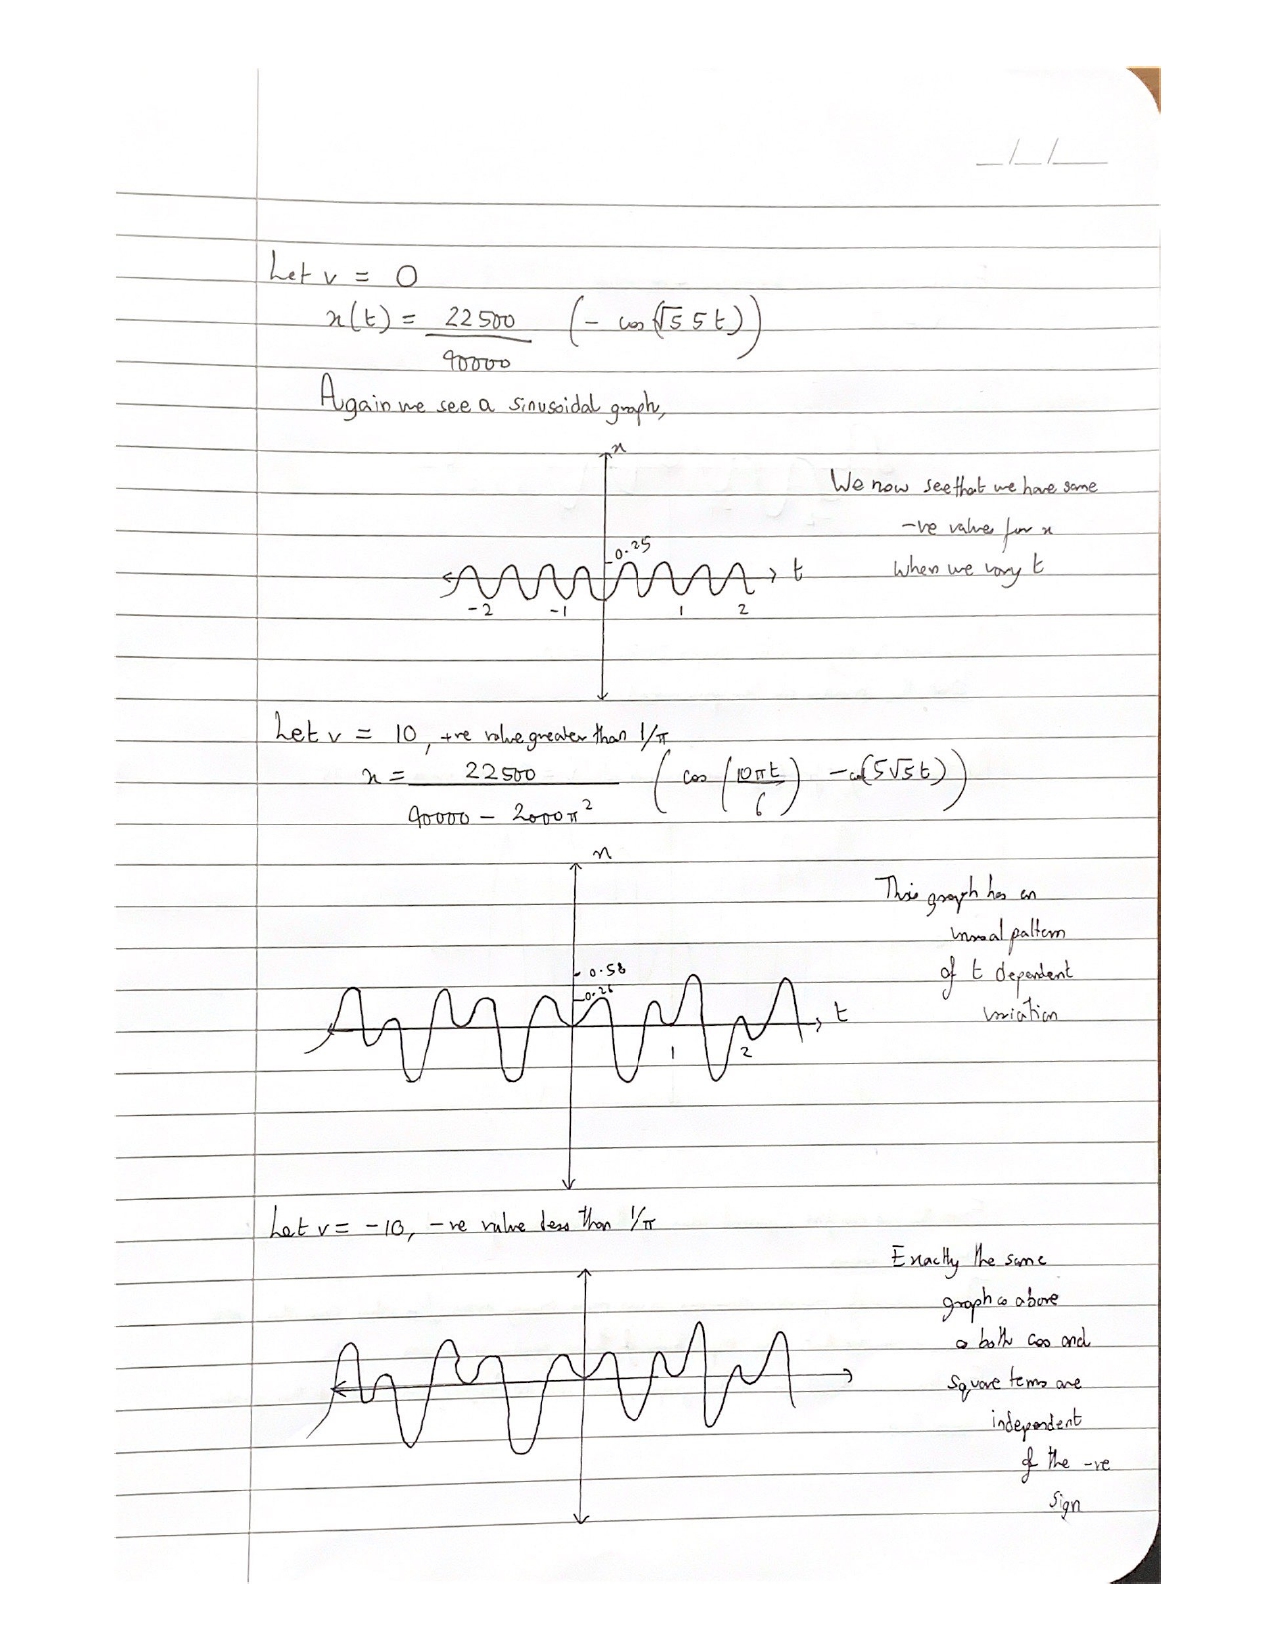 _/_/__
Let v = 0
x(t) = 22500/90000 (- cos(√5 5t))
Again we see a sinusoidal graph,
x
We now see that we have some
-ve values for x
when we vary t
0.25
t
-2 -1 1 2
Let v = 10, +ve value greater than 1/π
x = 22500/(90000 - 2000π²) (cos(10πt/6) - cos(5√5t))
x
This graph has an
unusal pattern
of t dependent
variation
0.58
0.26
t
1 2
Let v = -10, -ve value less than 1/π
Exactly the same
graph as above
as both cos and
square terms are
independent
of the -ve
sign